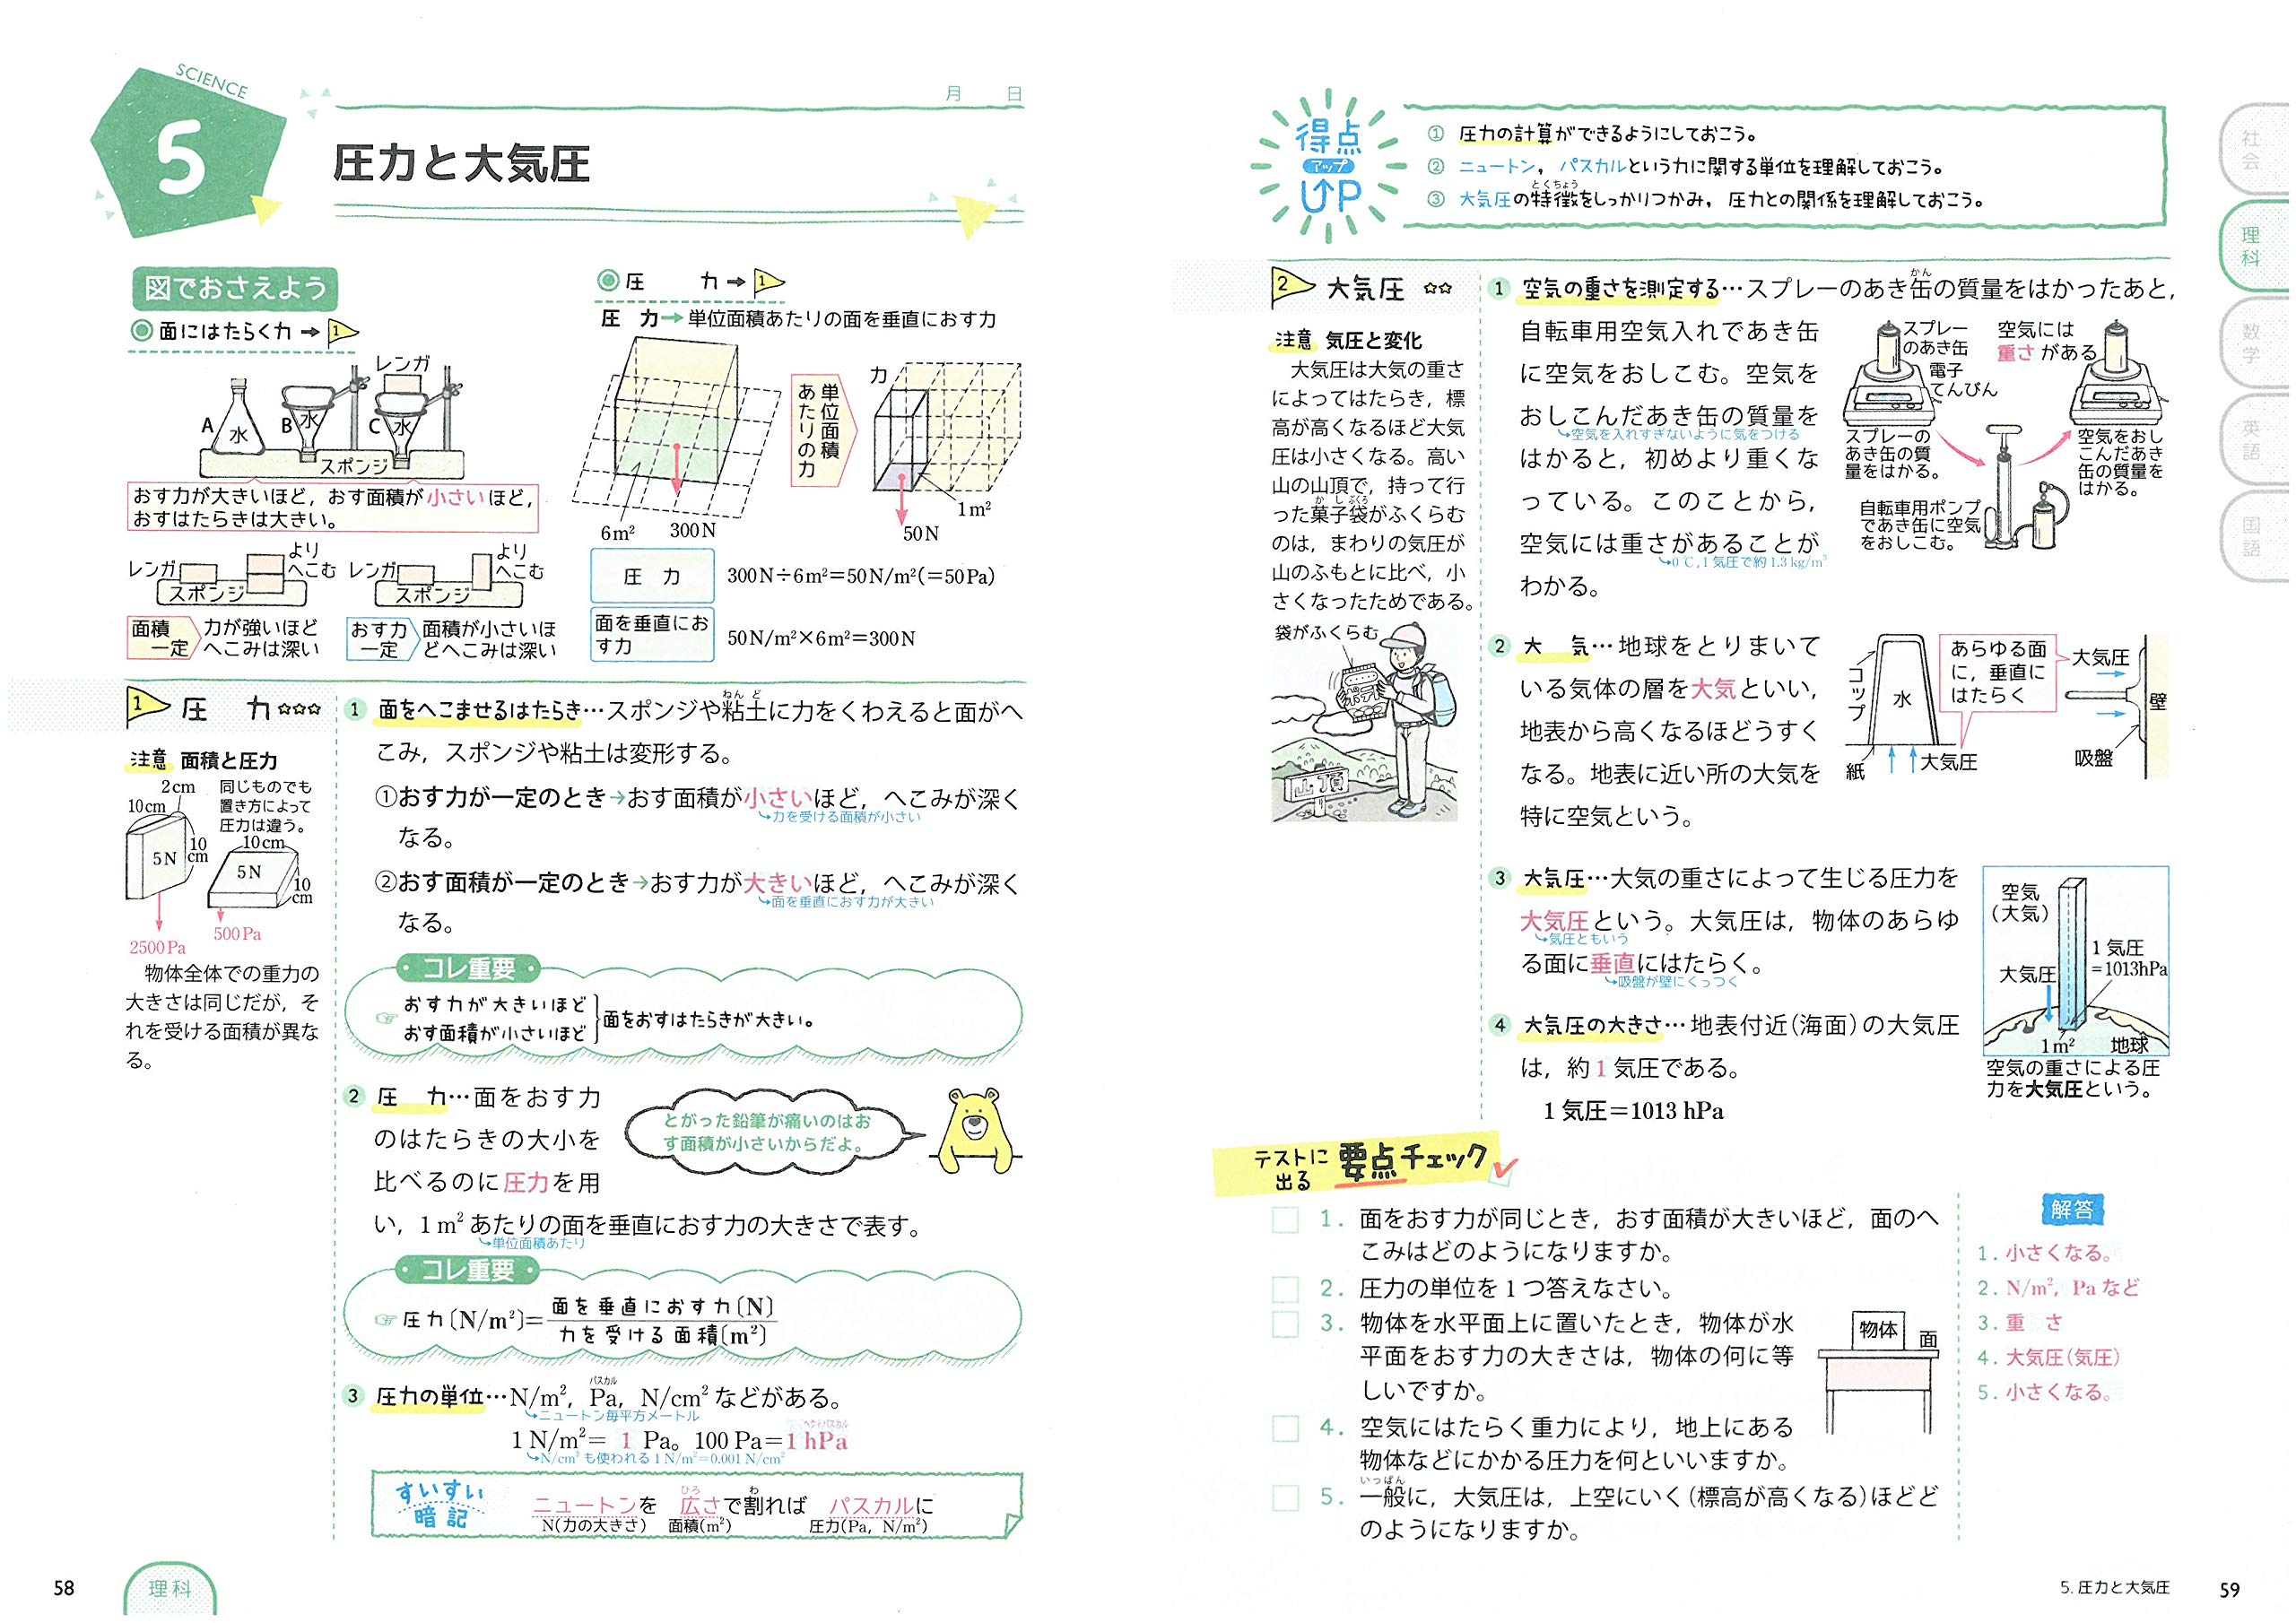 SCIENCE
5
月 日
圧力と大気圧
図でおさえよう
面にはたらく力→1
レンガ
A 水 B 水 C 水
スポンジ
おす力が大きいほど，おす面積が小さいほど，
おすはたらきは大きい。
レンガ
より
へこむ
スポンジ
レンガ
より
へこむ
スポンジ
面積
一定
力が強いほど
へこみは深い
おす力
一定
面積が小さいほ
どへこみは深い
圧 力→1
圧 力→単位面積あたりの面を垂直におす力
6m² 300N
単位面積
あたりの力
力
1m²
50N
圧 力
300N÷6m²=50N/m²(=50Pa)
面を垂直にお
す力
50N/m²×6m²=300N
1 圧 力☆☆☆
注意 面積と圧力
2cm
10cm
10
cm
5N
2500Pa
同じものでも
置き方によって
圧力は違う。
10cm
5N
10
cm
500Pa
物体全体での重力の
大きさは同じだが，そ
れを受ける面積が異な
る。
1 面をへこませるはたらき…スポンジや粘土に力をくわえると面がへ
ねんど
こみ，スポンジや粘土は変形する。
①おす力が一定のとき→おす面積が小さいほど，へこみが深く
力を受ける面積が小さい
なる。
②おす面積が一定のとき→おす力が大きいほど，へこみが深く
面を垂直におす力が大きい
なる。
コレ重要
おす力が大きいほど
おす面積が小さいほど
面をおすはたらきが大きい。
2 圧 力…面をおす力
のはたらきの大小を
比べるのに圧力を用
い，1m²あたりの面を垂直におす力の大きさで表す。
単位面積あたり
とがった鉛筆が痛いのはお
す面積が小さいからだよ。
コレ重要
圧力〔N/m²〕=面を垂直におす力〔N〕
力を受ける面積〔m²〕
3 圧力の単位…N/m²，Pa，N/cm²などがある。
パスカル
ニュートン毎平方メートル
1 N/m²= 1 Pa。100 Pa=1 hPa
ヘクトパスカル
N/cm²も使われる 1 N/m²=0.001 N/cm²
すいすい
暗記
ニュートンを 広さで割れば パスカルに
ひろ わ
N(力の大きさ) 面積(m²) 圧力(Pa，N/m²)
58
理科
得点
アップ
UP
① 圧力の計算ができるようにしておこう。
② ニュートン，パスカルという力に関する単位を理解しておこう。
③ 大気圧の特徴をしっかりつかみ，圧力との関係を理解しておこう。
とくちょう
社会
理科
数学
英語
国語
2 大気圧 ☆☆
注意 気圧と変化
大気圧は大気の重さ
によってはたらき，標
高が高くなるほど大気
圧は小さくなる。高い
山の山頂で，持って行
った菓子袋がふくらむ
かしぶくろ
のは，まわりの気圧が
山のふもとに比べ，小
さくなったためである。
袋がふくらむ
ポテト
山頂
1 空気の重さを測定する…スプレーのあき缶の質量をはかったあと，
かん
自転車用空気入れであき缶
に空気をおしこむ。空気を
おしこんだあき缶の質量を
空気を入れすぎないように気をつける
はかると，初めより重くな
っている。このことから，
空気には重さがあることが
0℃，1気圧で約1.3kg/m³
わかる。
スプレー
のあき缶
電子
てんびん
スプレーの
あき缶の質
量をはかる。
自転車用ポンプ
であき缶に空気
をおしこむ。
空気には
重さがある
空気をおし
こんだあき
缶の質量を
はかる。
2 大 気…地球をとりまいて
いる気体の層を大気といい，
地表から高くなるほどうすく
なる。地表に近い所の大気を
特に空気という。
コップ
水
紙
大気圧
あらゆる面
に，垂直に
はたらく
大気圧
壁
吸盤
3 大気圧…大気の重さによって生じる圧力を
大気圧という。大気圧は，物体のあらゆ
気圧ともいう
る面に垂直にはたらく。
吸盤が壁にくっつく
4 大気圧の大きさ…地表付近(海面)の大気圧
は，約1気圧である。
1気圧=1013 hPa
空気
(大気)
大気圧
1気圧
=1013hPa
1m² 地球
空気の重さによる圧
力を大気圧という。
テストに
出る
要点チェック
1. 面をおす力が同じとき，おす面積が大きいほど，面のへ
こみはどのようになりますか。
2. 圧力の単位を1つ答えなさい。
3. 物体を水平面上に置いたとき，物体が水
平面をおす力の大きさは，物体の何に等
しいですか。
物体
面
4. 空気にはたらく重力により，地上にある
物体などにかかる圧力を何といいますか。
5. 一般に，大気圧は，上空にいく(標高が高くなる)ほどど
いっぱん
のようになりますか。
解答
1. 小さくなる。
2. N/m²，Paなど
3. 重 さ
4. 大気圧(気圧)
5. 小さくなる。
5. 圧力と大気圧 59